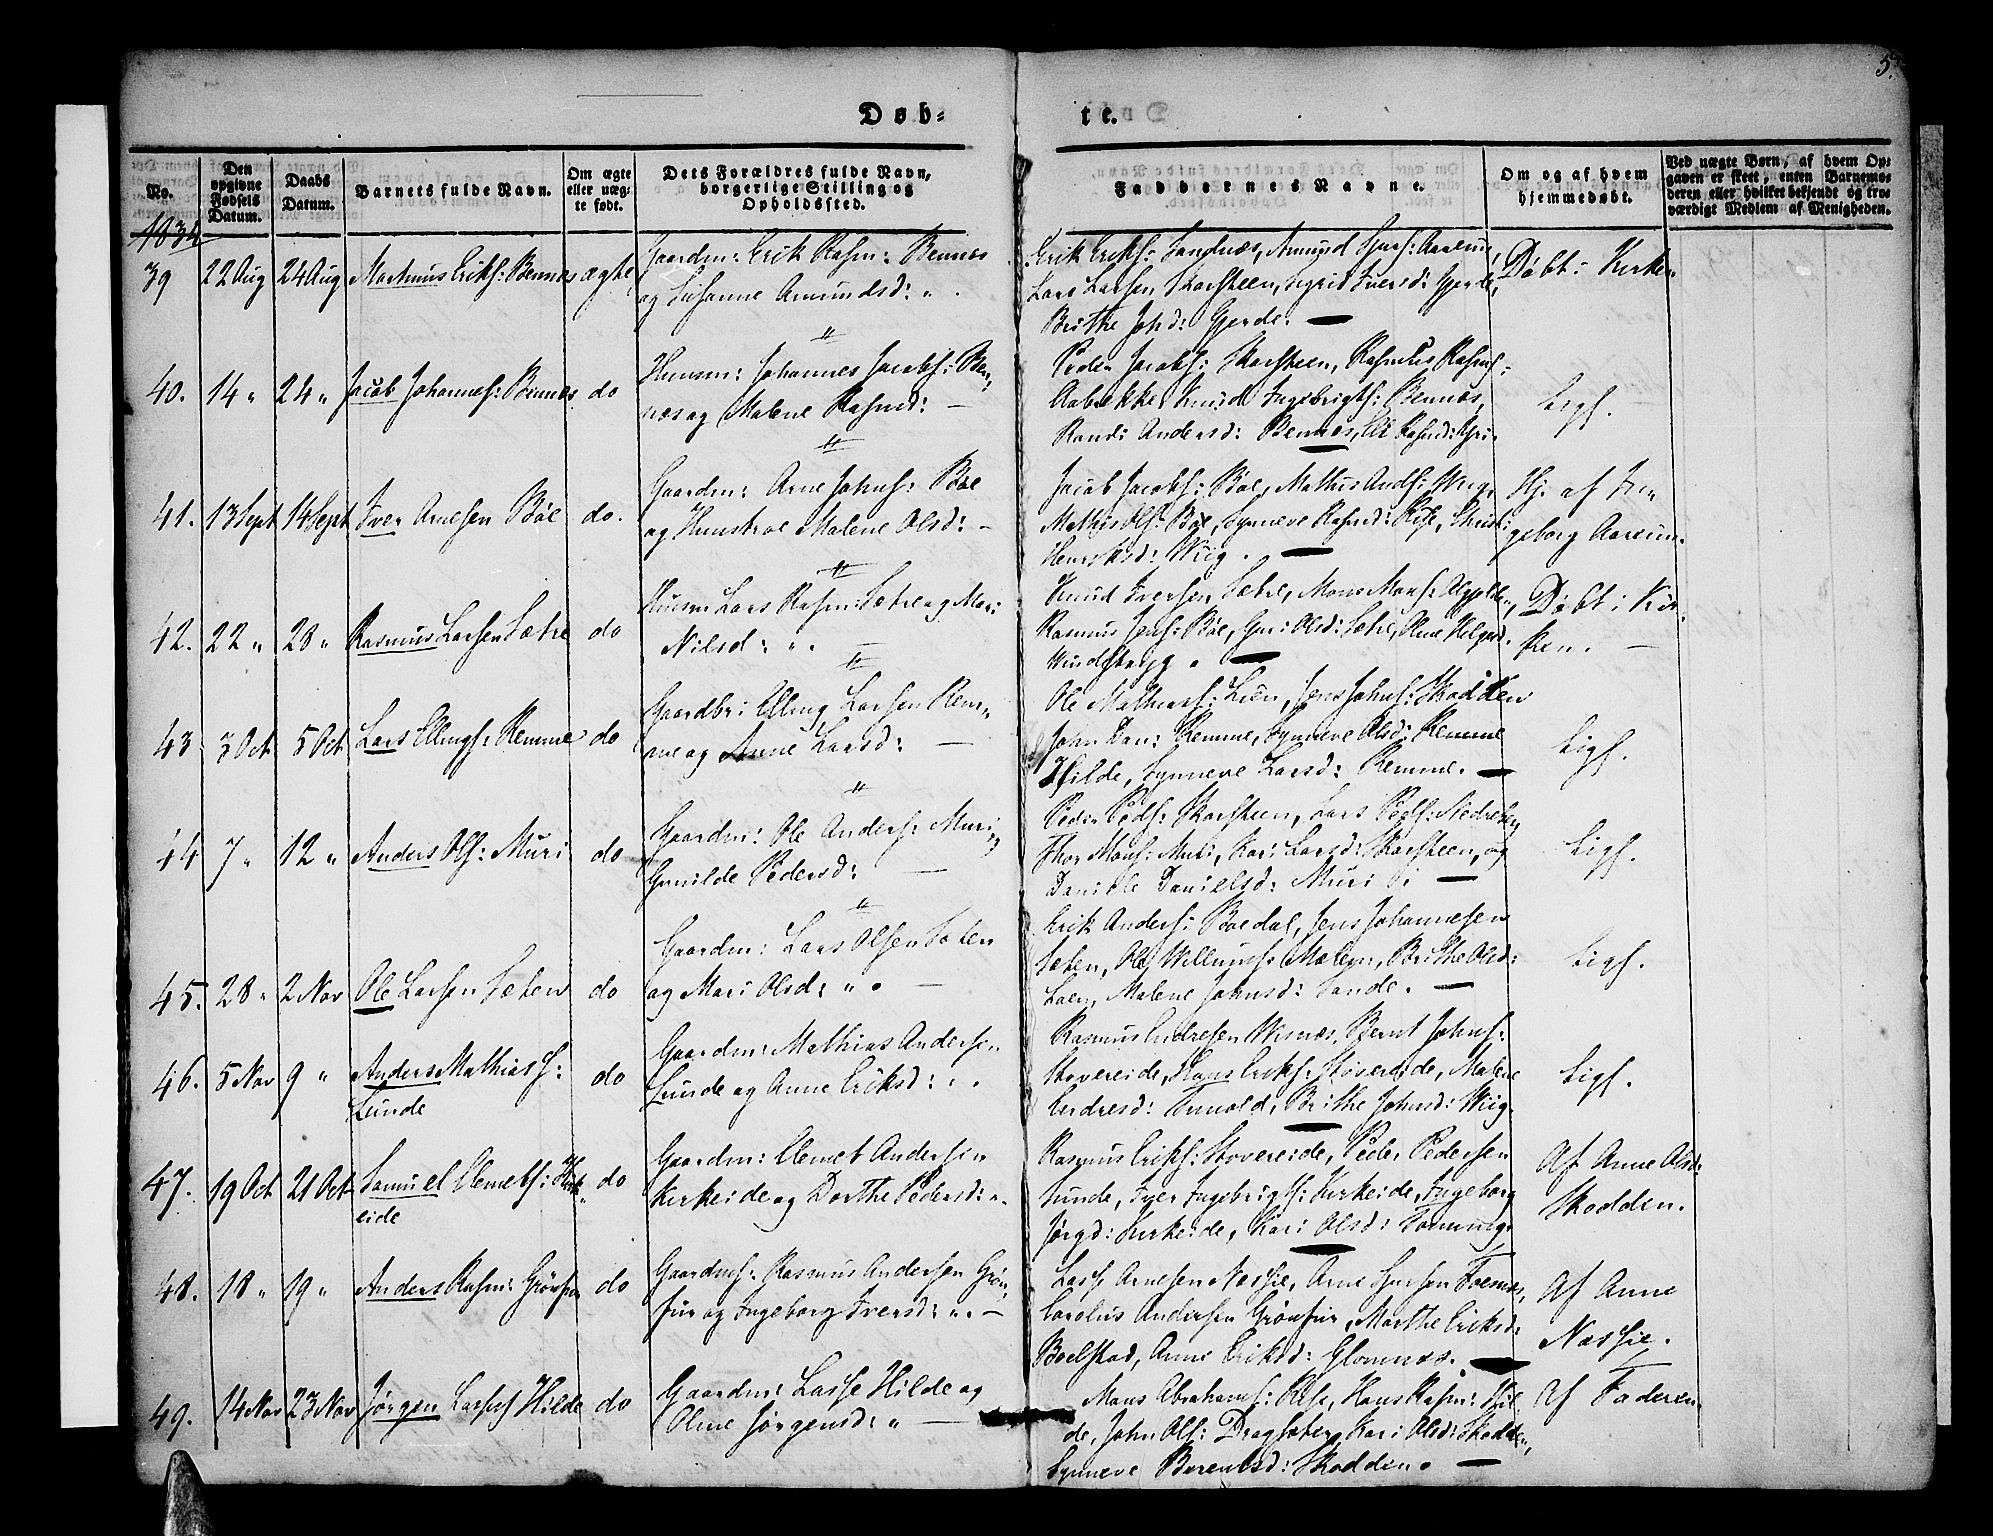 5.
Døb- te.
No.
Den opgivne Fødsels Datum.
Daabs Datum.
Barnets fulde Navn.
Om ægte eller uægte født.
Dets Forældres fulde Navn, borgerlige Stilling og Opholdssted.
Faddernes Navne.
Om og af hvem hjemmedøbt.
Ved uægte Børn, af hvem Opgaven er skeet, enten Barnemoderen eller hvilket bekjendt og troværdigt Medlem af Menigheden.
1834
39 22 Aug 24 Aug Marthinus Eriks: Bennes ægte
Gaardm: Erik Rasm: Bennes
og Susanne Amundsd: "
Erik Eriks: Sandnæs, Amund
Lars Larsen Skarsteen, Sigrid Iversd: Gjerde,
Brithe Johd: Gjerde.
Døbt i Kirken
40. 14 " 24 " Jacob Johannes: Bennes do
Huusm: Johannes Jacobs: Ben-
nes og Malene Rasmd:
Peder Jacobs: Skarsteen, Rasmus Rasm:
Aabrekke, Knud Ingebrigts: Bennes,
Randi Andersd: Bennes,
Ligs.
41. 13 Sept 14 Sept Iver Arnesen Böe do.
Gaardm: Arne Johns: Böe
og Hunstroe Malene Olsd:
Jacob Jacobs: Böe, Mathis Ands: Wiig,
Mathis Ols: Böe, Synneve Rasmd:
Henriksd: Wiig.
Hj. af In-
geborg
42. 22 " 28 " Rasmus Larsen Sætre do
Huusm Lars Rasm: Sætre og Mari
Nilsd: "
Knud Iversen Sætre, Mons Mons:
Rasmus Jens: Böe, Guri Olsd: Sætre, Oline
Døbt i Kir-
ken.
43 3 Oct 5 Oct Lars Ellings: Remme do
Gaardbr: Elling Larsen Rem-
me og Anne Larsd:
Ole Mathias: Lien, Jens Johns: Skadden
John Dan: Remme, Synneve Olsd: Remme
Hilde, Synneve Larsd: Remme.
Ligs.
44 7 " 12 " Anders Ols: Muri do
Gaardm: Ole Anders: Muri og
Gunilde Pedersd:
Peder Peds: Skarsteen, Lars Peds:
Thor Mons: Muri, Kari Larsd: Skarsteen, og
Daniele Danielsd: Muri
Ligs.
45. 28 " 2 Nov Ole Larsen Sæten do
Gaardm: Lars Olsen Sæten
og Mari Olsd: "
Erik Anders: Bødal, Jens Johannesen
Sæten, Ole Willums: Melheim, Brithe Olsd:
Loen, Malene Johnsd: Sande.
Ligs.
46. 5 Nov 9 " Anders Mathias S:
Lunde do
Gaardm: Mathias Andersen
Lunde og Anne Eriksd: "
Rasmus Endresen Wisnæs, Bernt Johns:
Stovereide, Hans Eriks: Støvereide, Malene
Endresd: Tunold, Brithe Johnsd: Wiig
Ligs.
47. 19 Oct 21 Oct Samuel Clemets: Kirk-
eide do
Gaardm: Clemet Andersen
Kirkeide og Dorthe Pedersd: "
Rasmus Eriks: Stovereide, Peder Pedersen
Lunde, Iver Ingebrigts: Kirkeide, Ingeborg
Jørgd: Kirkeide, Kari Olsd: Tonning.
Af Anne Olsd:
Skadden.
48. 18 " 19 " Anders Rasm: Grönfur do
Gaardm: Rasmus Andersen Grön-
fur og Ingeborg Iversd: "
Lasse Arnesen Næssie, Arne
Carolus Andersen Grönfur, Marthe Eriksd:
Boelstad, Anne Eriksd: Glomnæs.
Af Anne
Næssie.
49. 14 Nov 23 Nov Jørgen Lasses Hilde do
Gaardm: Lasse Hilde og
Oline Jørgensd: "
Mons Abrahams: Rise, Hans Rasm: Hil-
de, John Ols: Dragsæter, Kari Olsd: Skadden,
Synneve Berentsd: Skadden.
Af Faderen